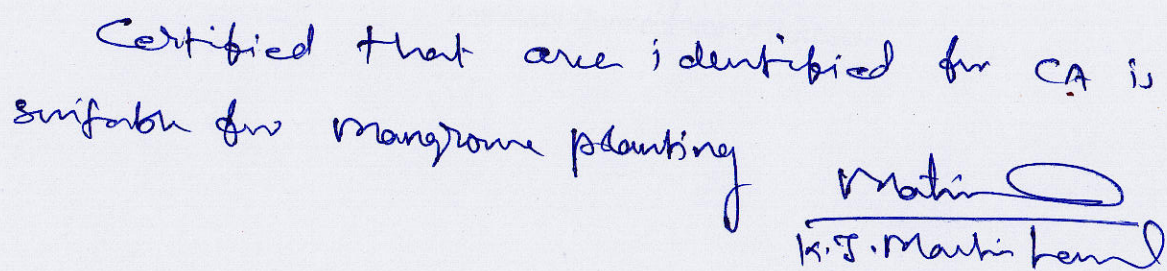 Certified that area identified for CA is
suitable for mangrove planting
K. J. Martin